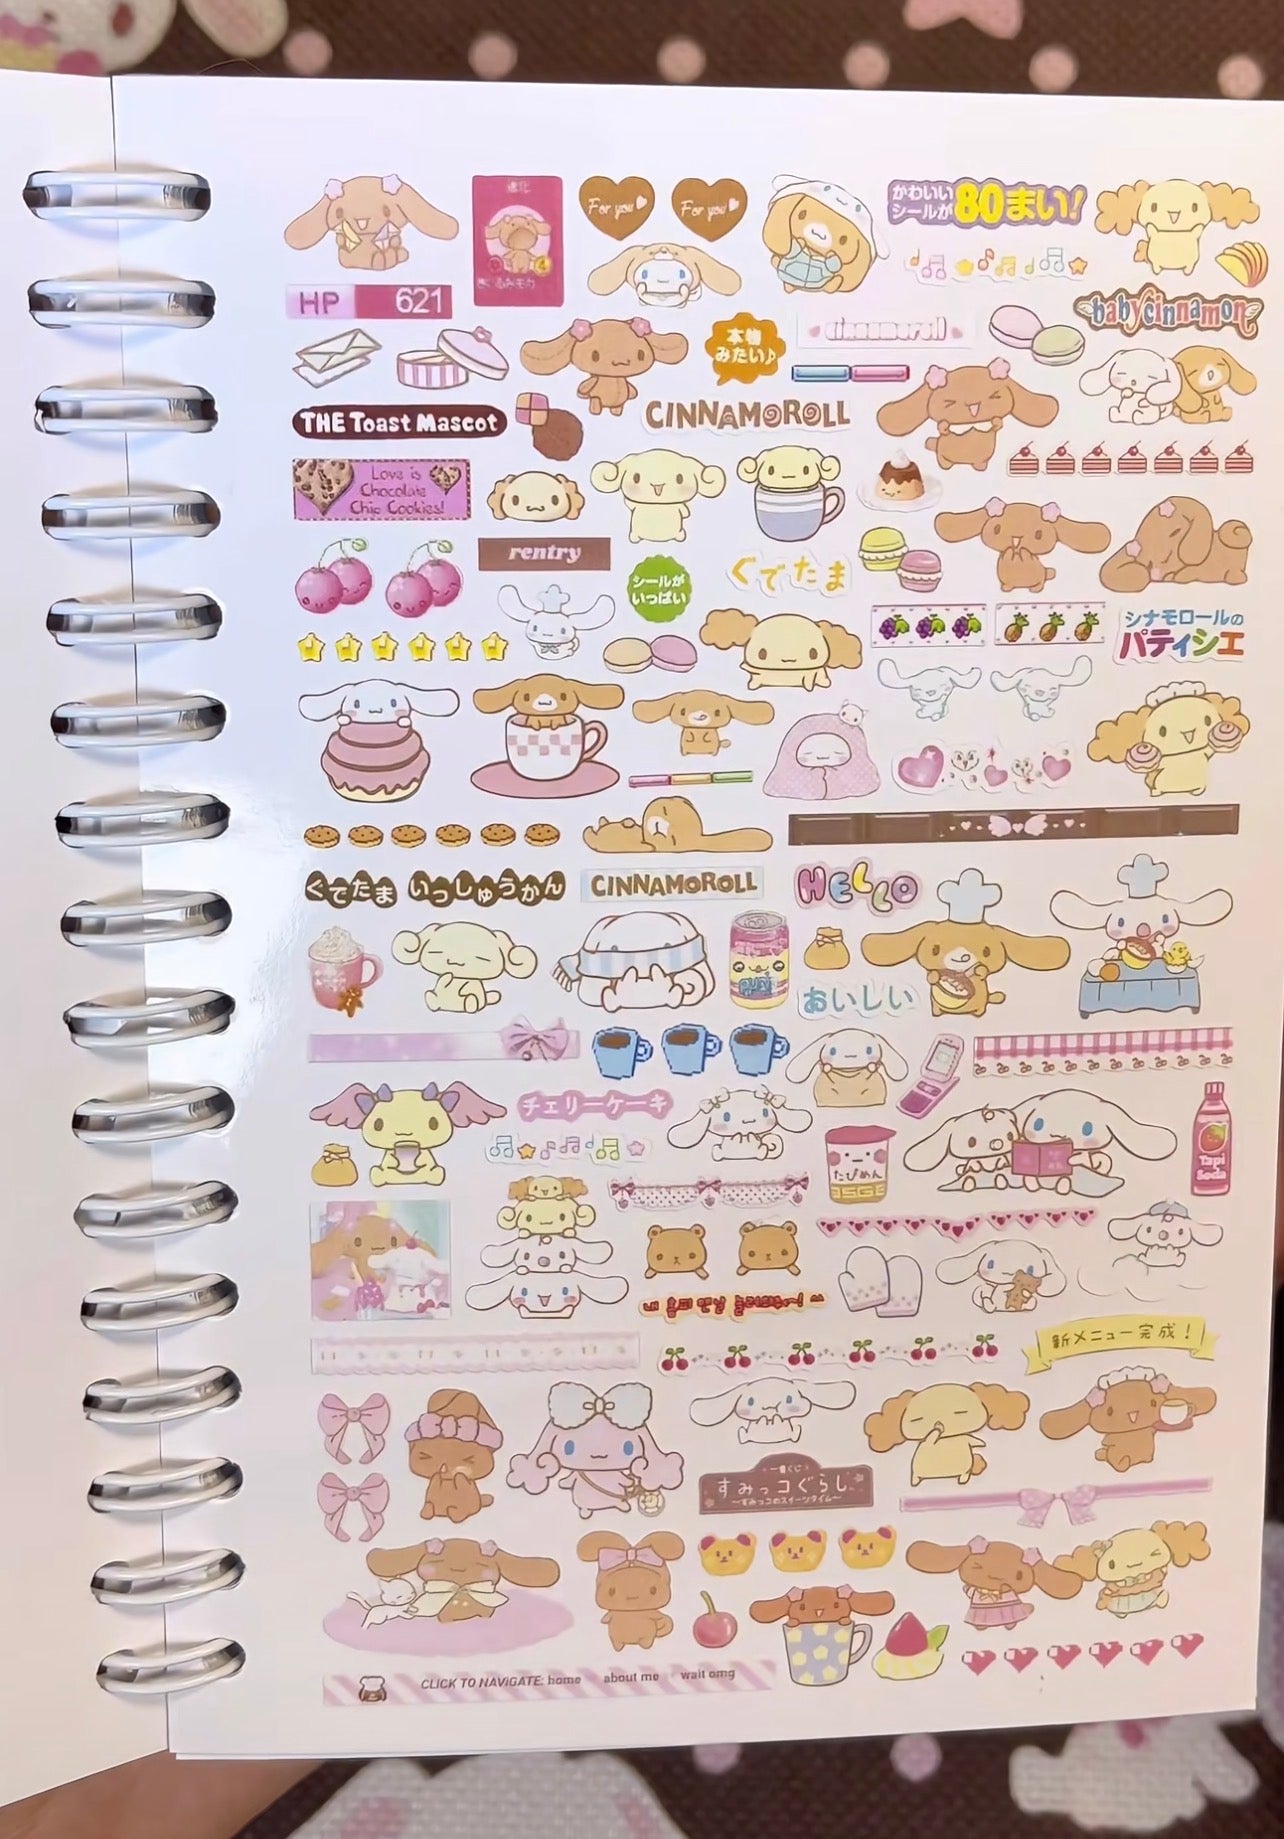 進化
For you
For you
かわいい
シールが
80まい!
HP 621
babycinnamon
本物
みたい♪
cinnamoroll
THE Toast Mascot
CINNAMOROLL
Love is
Chocolate
Chip Cookies!
rentry
シールが
いっぱい
ぐでたま
シナモロールの
パティシエ
ぐでたま いっしゅうかん
CINNAMOROLL
HELLO
おいしい
チェリーケーキ
たぴめん
Tapi
Soda
新メニュー完成!
一番くじ
すみっコぐらし
~すみっコのスイーツタイム~
CLICK TO NAViGATE: home about me wait omg